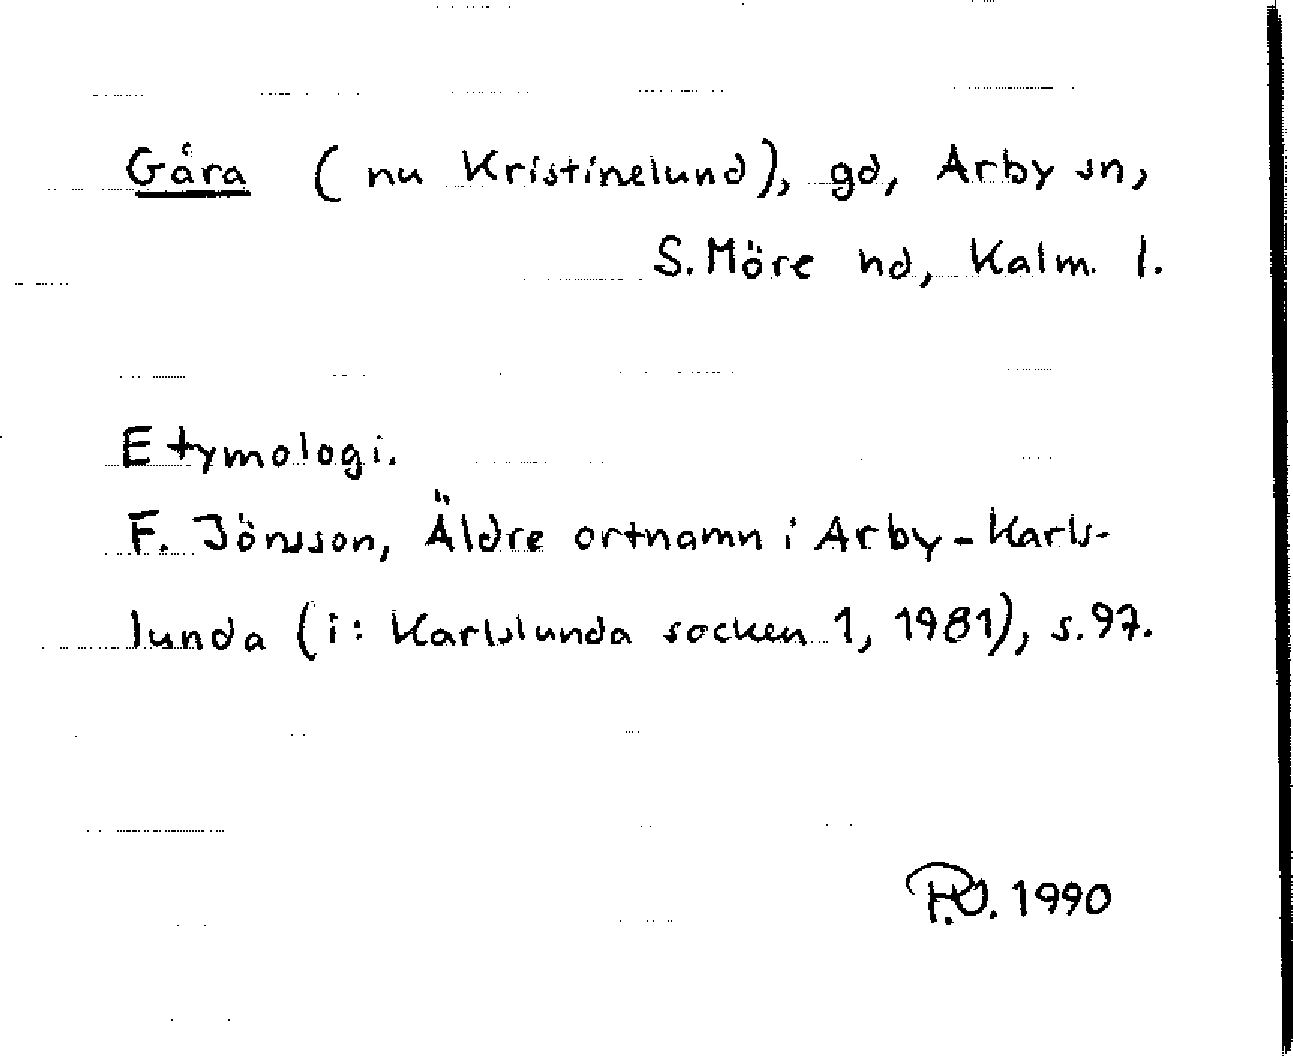 Gåra (nu Kristinelund), gd, Arby sn,
S. Möre hd, Kalm. l.
Etymologi.
F. Jönsson, Äldre ortnamn i Arby-Karls-
lunda (i: Karlslunda socken 1, 1981), s. 97.
1990